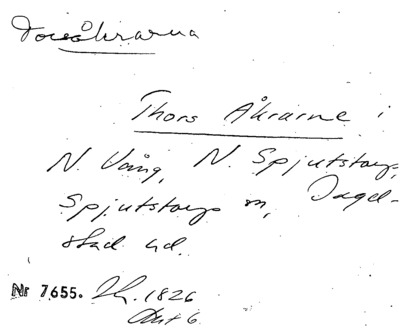 Toreåkrarna
Thors Åkrarne i
N. Vång, N. Spjutstorp,
Spjutstorp sn, Ingel-
stad hd.
Nr 7655. Lh. 1826
Akt 6